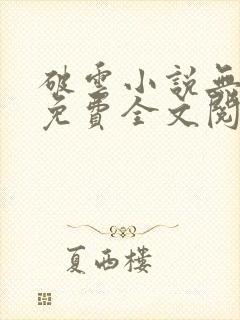 破雲小說無
免費全文閱
夏西樓